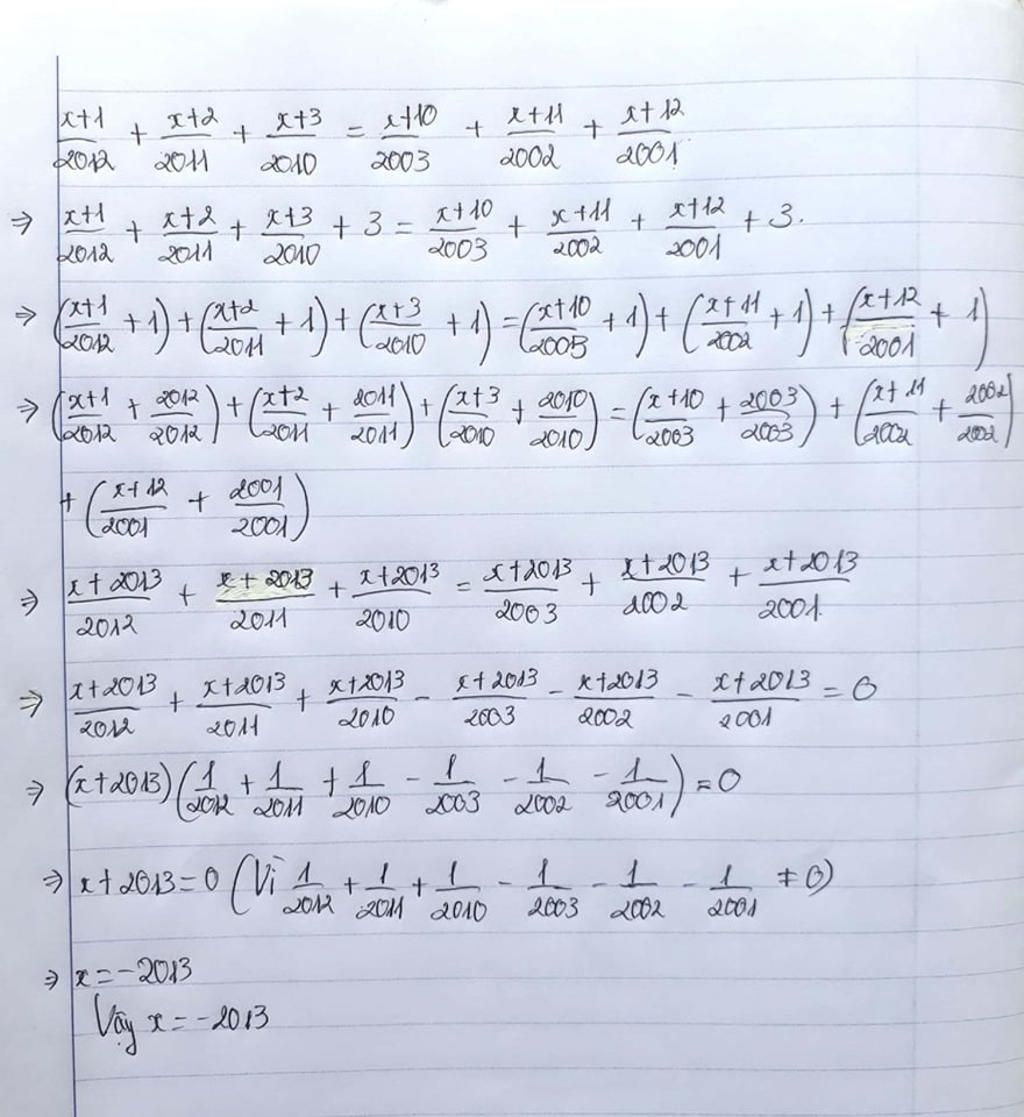 x+1/2012 + x+2/2011 + x+3/2010 = x+10/2003 + x+11/2002 + x+12/2001
⇒ x+1/2012 + x+2/2011 + x+3/2010 + 3 = x+10/2003 + x+11/2002 + x+12/2001 + 3.
⇒ (x+1/2012 + 1) + (x+2/2011 + 1) + (x+3/2010 + 1) = (x+10/2003 + 1) + (x+11/2002 + 1) + (x+12/2001 + 1)
⇒ (x+1/2012 + 2012/2012) + (x+2/2011 + 2011/2011) + (x+3/2010 + 2010/2010) = (x+10/2003 + 2003/2003) + (x+11/2002 + 2002/2002)
+ (x+12/2001 + 2001/2001)
⇒ x+2013/2012 + x+2013/2011 + x+2013/2010 = x+2013/2003 + x+2013/2002 + x+2013/2001
⇒ x+2013/2012 + x+2013/2011 + x+2013/2010 - x+2013/2003 - x+2013/2002 - x+2013/2001 = 0
⇒ (x+2013)(1/2012 + 1/2011 + 1/2010 - 1/2003 - 1/2002 - 1/2001) = 0
⇒ x+2013=0 (Vì 1/2012 + 1/2011 + 1/2010 - 1/2003 - 1/2002 - 1/2001 ≠ 0)
⇒ x=-2013
Vậy x=-2013